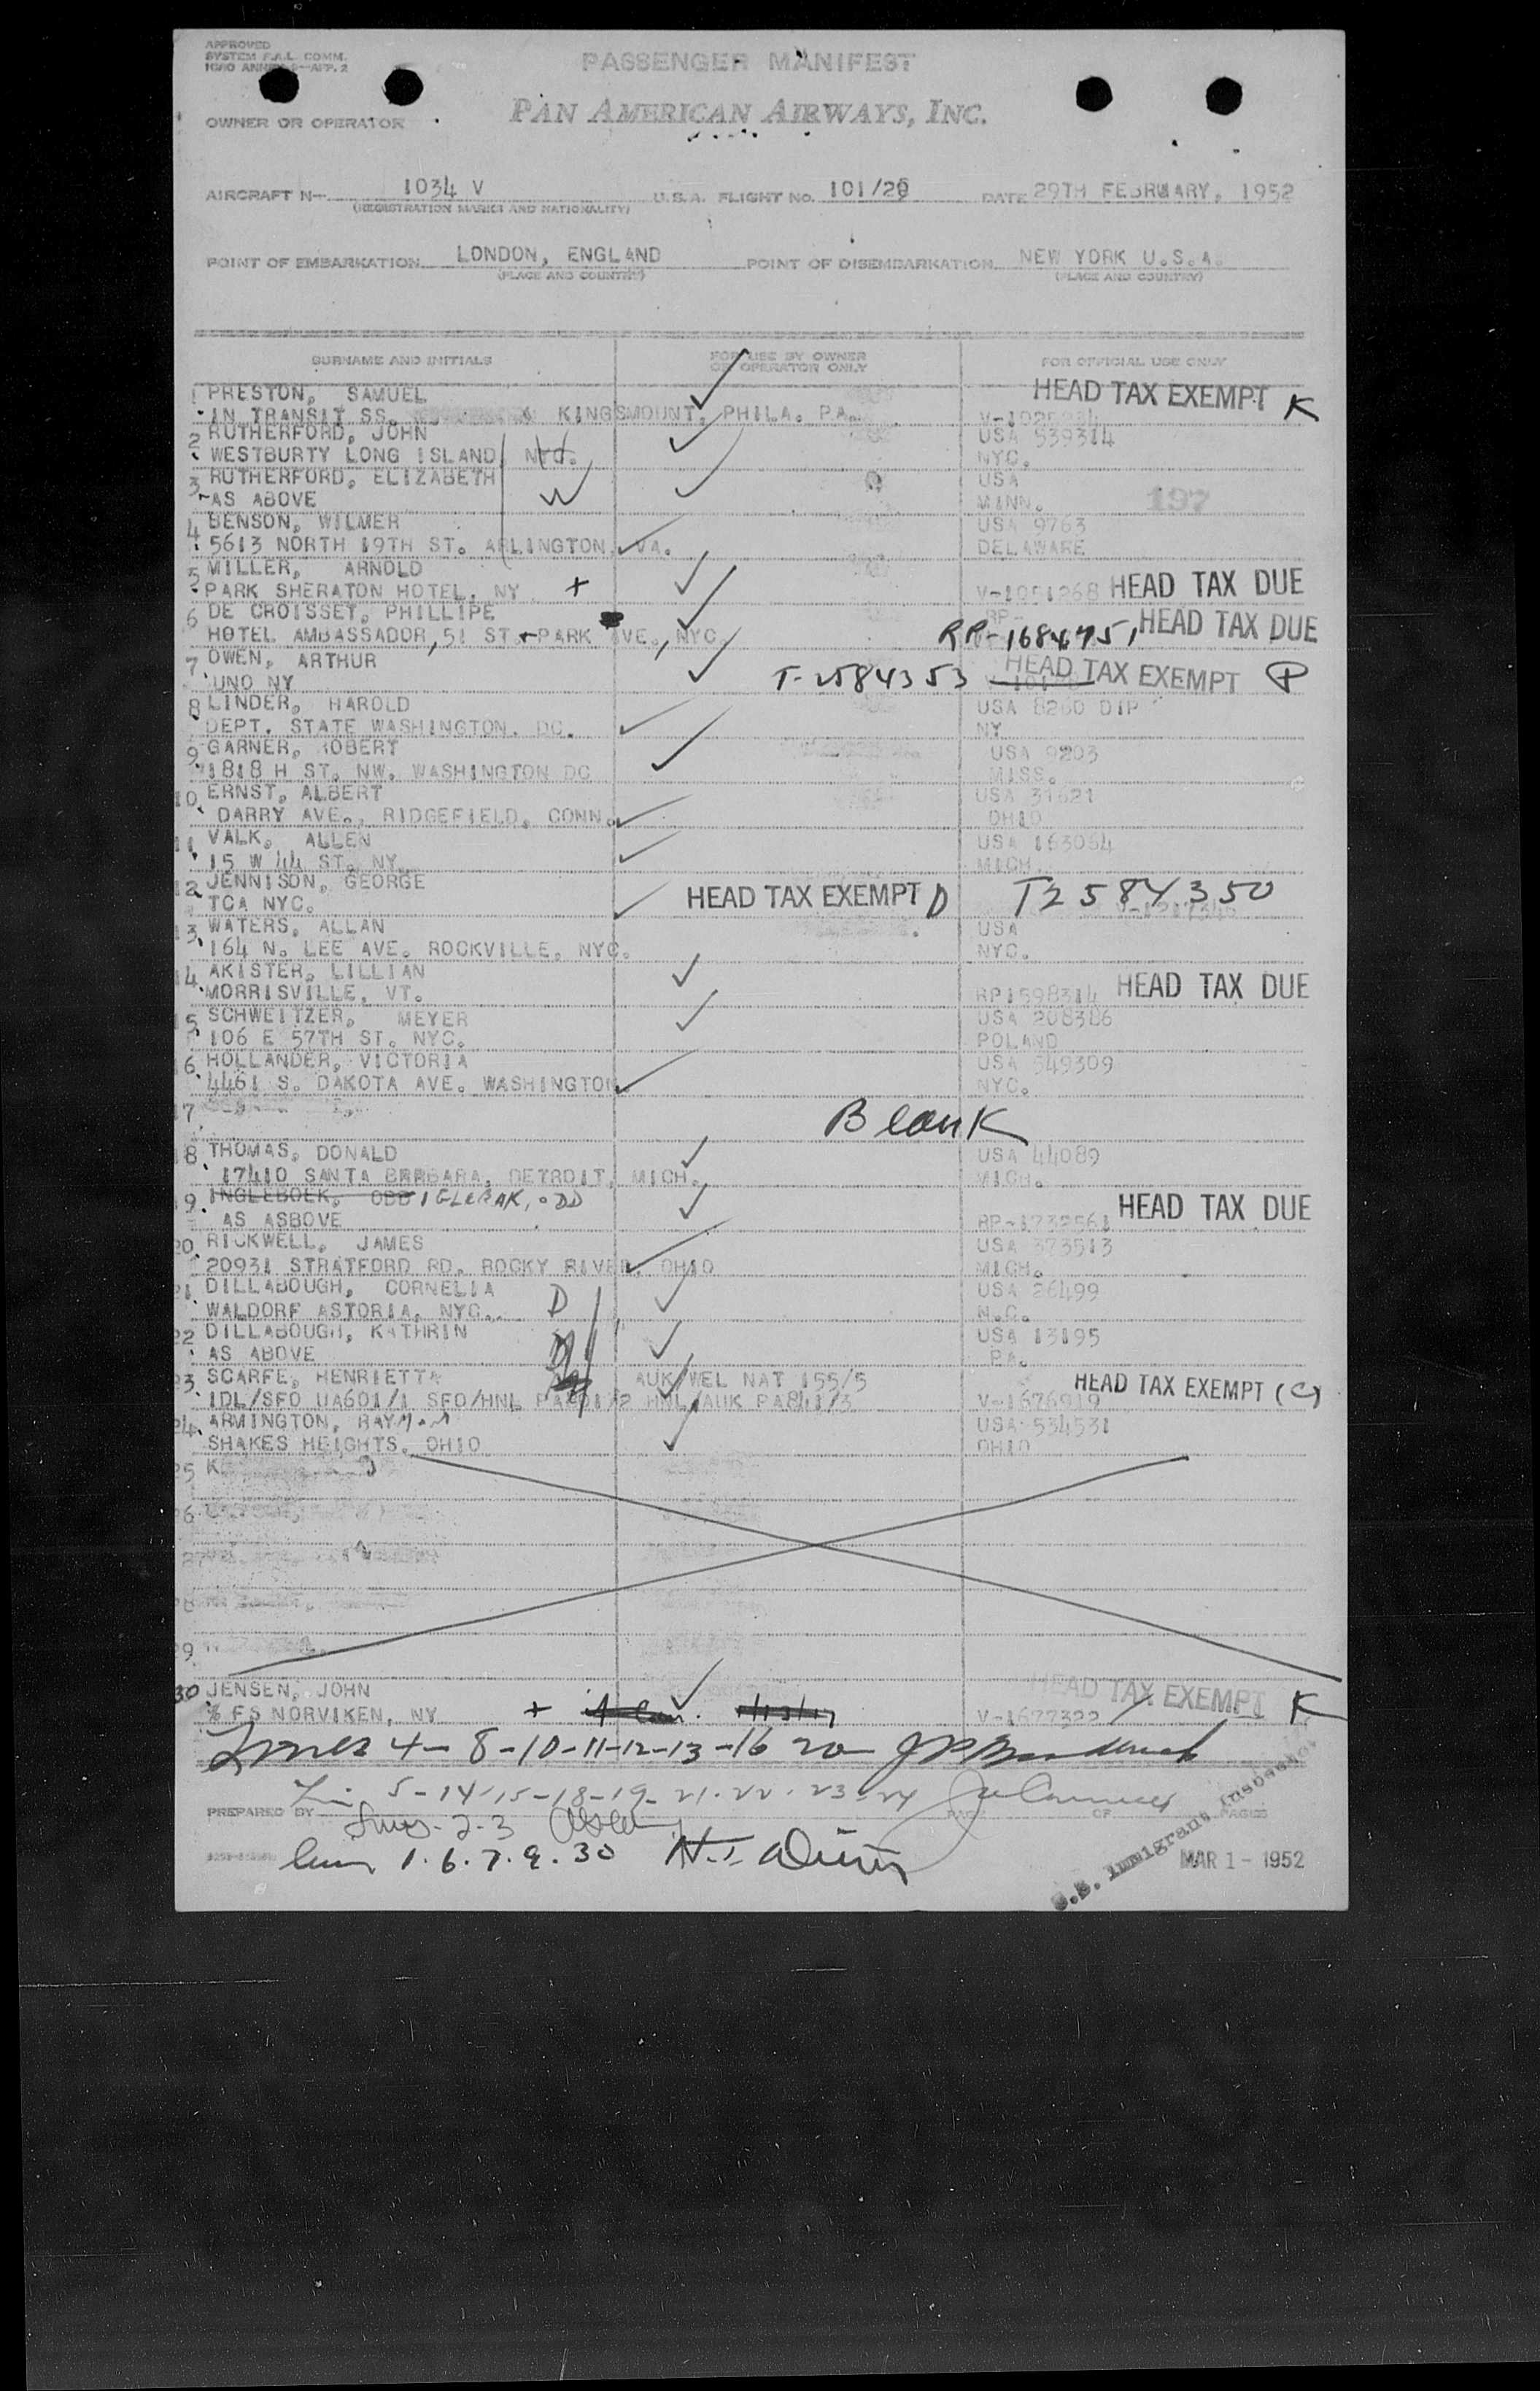 APPROVED
SYSTEM F.A.L. COMM.
PASSENGER MANIFEST
OWNER OR OPERATOR
PAN AMERICAN AIRWAYS, INC.
AIRCRAFT N- 1034 V U.S.A. FLIGHT NO. 101/28 DATE 29TH FEBRUARY, 1952
(REGISTRATION MARKS AND NATIONALITY)
POINT OF EMBARKATION LONDON, ENGLAND POINT OF DISEMBARKATION NEW YORK U.S.A.
(PLACE AND COUNTRY) (PLACE AND COUNTRY)
SURNAME AND INITIALS FOR USE BY OWNER OR OPERATOR ONLY FOR OFFICIAL USE ONLY
1 PRESTON, SAMUEL HEAD TAX EXEMPT K
IN TRANSIT SS. KINGSMOUNT, PHILA. PA.
2 RUTHERFORD, JOHN USA 539314
WESTBURTY LONG ISLAND, NYC. NYC.
3 RUTHERFORD, ELIZABETH USA
AS ABOVE W MINN. 197
4 BENSON, WILMER USA 9763
5613 NORTH 19TH ST. ARLINGTON, VA. DELAWARE
5 MILLER, ARNOLD
PARK SHERATON HOTEL, NY + V-1051268 HEAD TAX DUE
6 DE CROISSET, PHILLIPE RP-
HOTEL AMBASSADOR, 51 ST + PARK AVE, NYC. RP-1684751 HEAD TAX DUE
7 OWEN, ARTHUR
UNO NY T-2584353 HEAD TAX EXEMPT P
8 LINDER, HAROLD USA 8260 DIP
DEPT. STATE WASHINGTON. DC. NY
9 GARNER, ROBERT USA 9203
1818 H ST. NW. WASHINGTON DC MISS.
10 ERNST, ALBERT USA 31621
DARRY AVE., RIDGEFIELD, CONN. OHIO
11 VALK, ALLEN USA 163054
15 W 44 ST. NY. MICH.
12 JENNISON, GEORGE HEAD TAX EXEMPT D T2584350
TCA NYC.
13 WATERS, ALLAN USA
164 N. LEE AVE. ROCKVILLE, NYC. NYC.
14 AKISTER, LILLIAN
MORRISVILLE, VT. RP1598314 HEAD TAX DUE
15 SCHWEITZER, MEYER USA 208386
106 E 57TH ST. NYC. POLAND
16 HOLLANDER, VICTORIA USA 549309
4461 S. DAKOTA AVE. WASHINGTON. NYC.
17 Blank
18 THOMAS, DONALD USA 44089
17410 SANTA BARBARA, DETROIT, MICH. MICH.
19 INGLEBOEK, ODD IGLEBAK, ODD
AS ASBOVE RP-1732561 HEAD TAX DUE
20 RICKWELL, JAMES USA 373513
20931 STRATFORD RD. ROCKY RIVER, OHIO MICH.
21 DILLABOUGH, CORNELIA USA 26499
WALDORF ASTORIA, NYC.. D N.C.
22 DILLABOUGH, KATHRIN USA 13195
AS ABOVE PA.
23 SCARFE, HENRIETTA AUK/WEL NAT 155/5 HEAD TAX EXEMPT (C)
IDL/SFO UA601/1 SFO/HNL PA801/2 HNL/AUK PA841/3 V-1676919
24 ARMINGTON, RAYM USA 534531
SHAKES HEIGHTS, OHIO OHIO
25 K
26
27
28
29
30 JENSEN, JOHN HEAD TAX EXEMPT K
% FS NORVIKEN, NY + V-1677322
Lines 4-8-10-11-12-13-16 20
5-14-15-18-19-21-22-23-24
PREPARED BY PAGE OF PAGES
Lines-2-3
Lines 1.6.7.9.30
U.S. Immigrant Inspector
MAR 1 - 1952